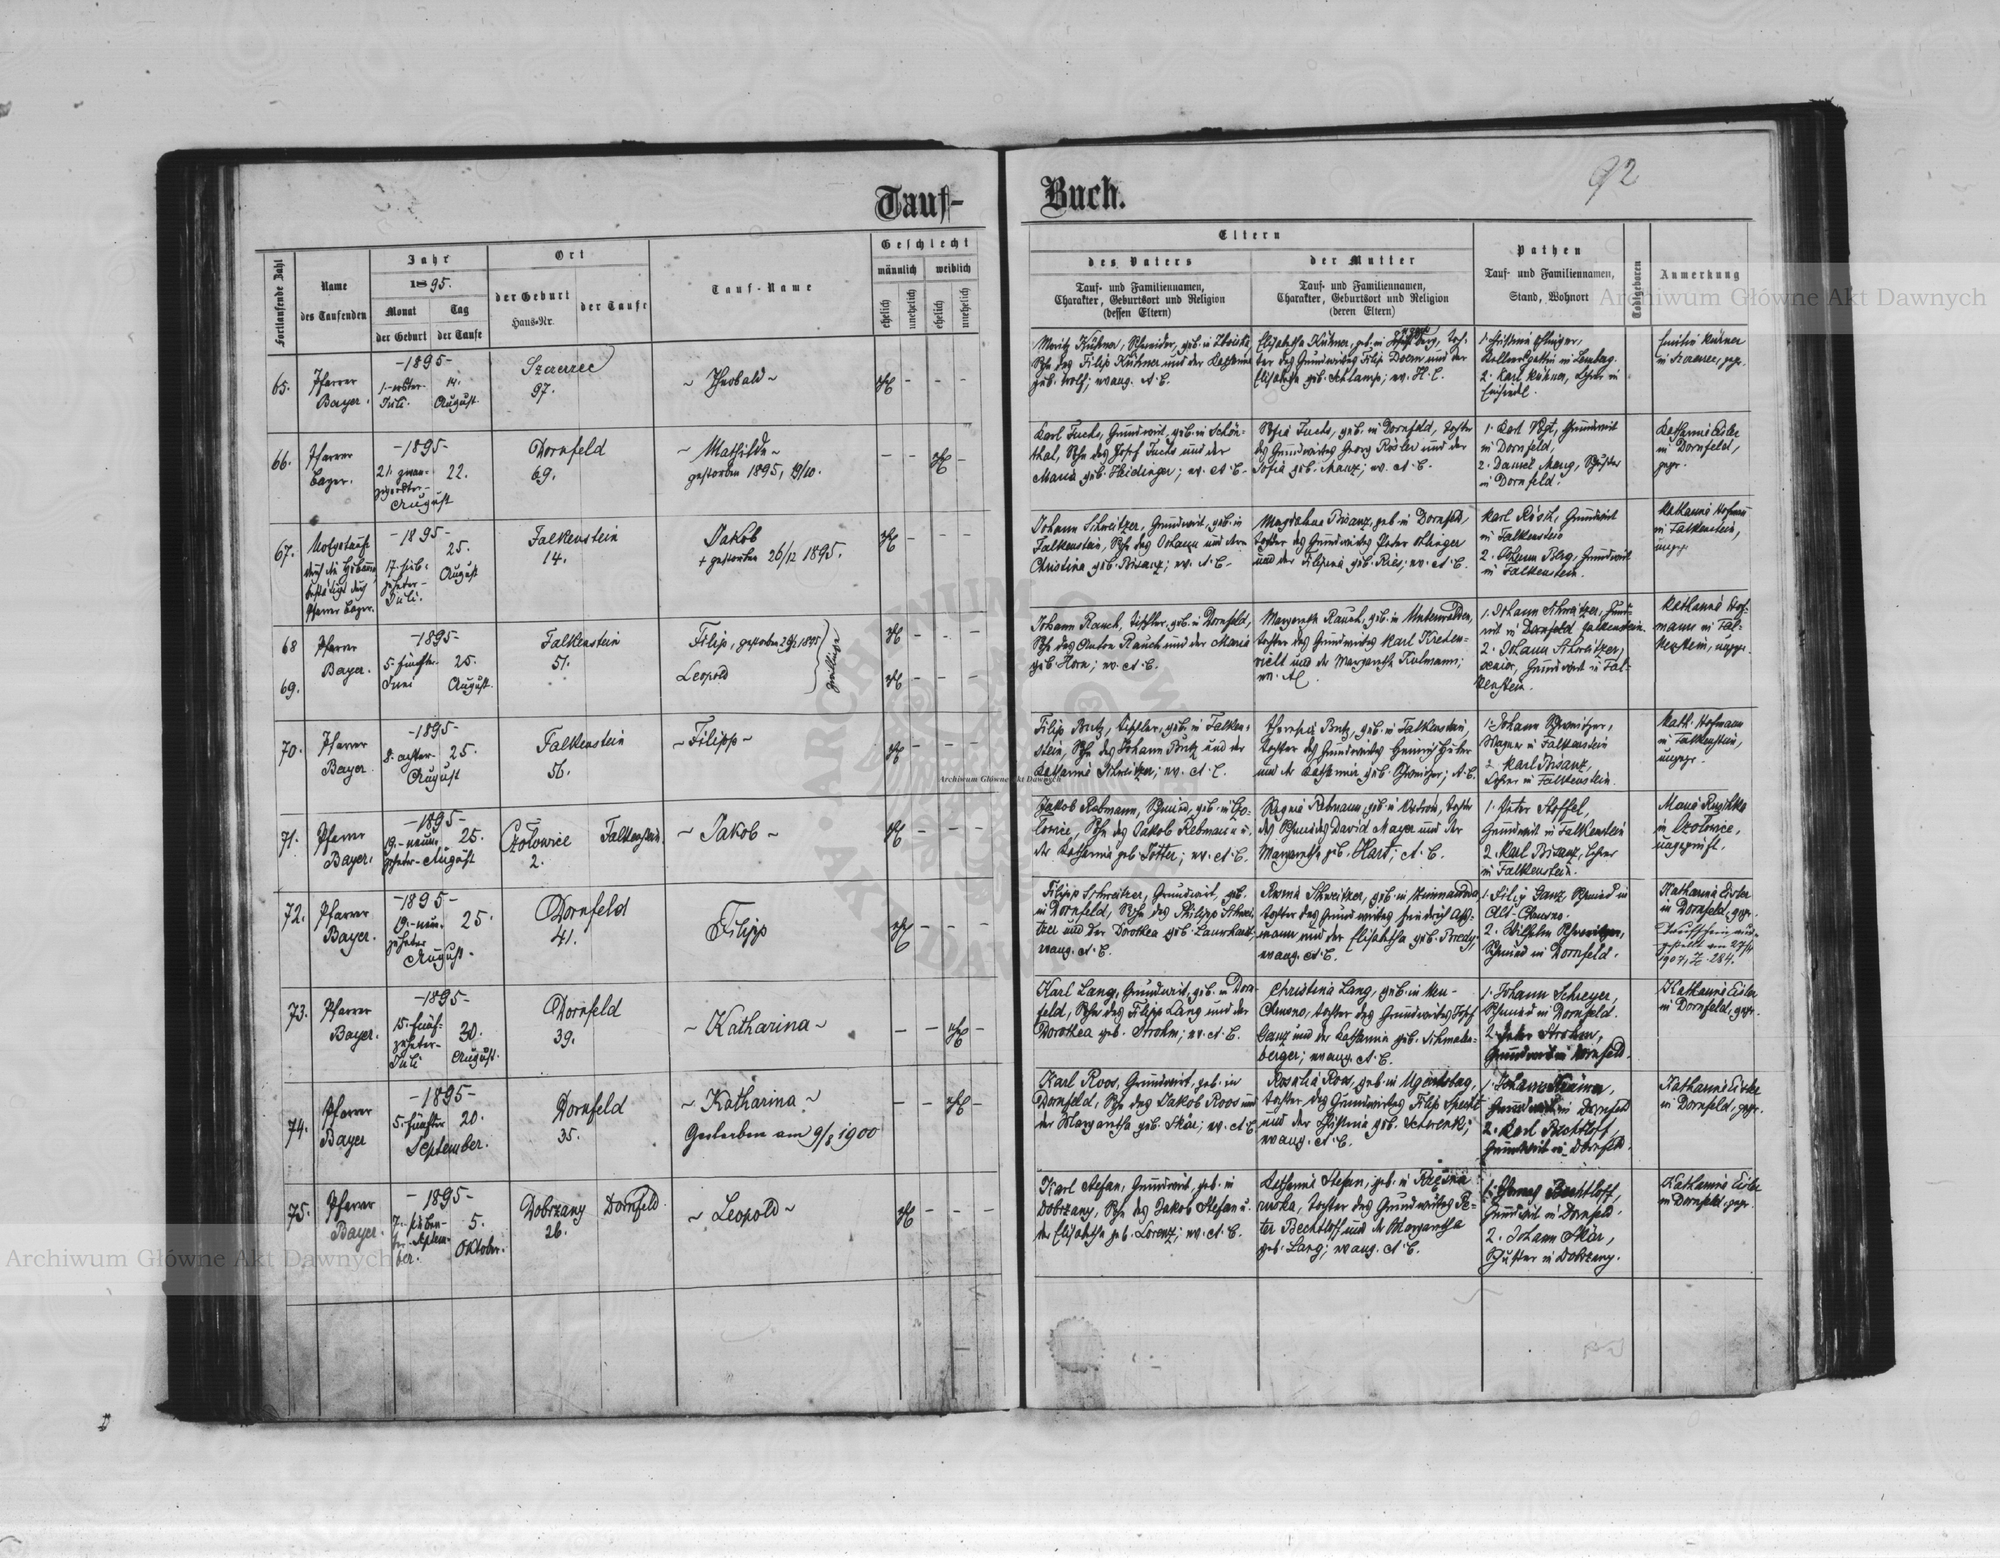 Tauf-
Buch.
92
Fortlaufende Zahl
Name
des Taufenden
Jahr
1895.
Monat
der Geburt
Tag
der Taufe
Ort
der Geburt
Haus-Nr.
der Taufe
Tauf-Name
Geschlecht
männlich
weiblich
ehelich
unehelich
ehelich
unehelich
Eltern
des Vaters
Tauf- und Familiennamen,
Charakter, Geburtsort und Religion
(dessen Eltern)
der Mutter
Tauf- und Familiennamen,
Charakter, Geburtsort und Religion
(deren Eltern)
Pathen
Tauf- und Familiennamen,
Stand, Wohnort
Todtgeboren
Anmerkung
65.
Pfarrer
Bayer.
-1895-
Juli.
14.
August.
Szczerzec
97.
~ Theobald ~
Moritz Kühner, Schneider, geb. in
Sohn des Filip Kühner und der Katharina
geb. Wolf; evang. A. C.
Elisabetha Kühner, geb. in
ter des Grundwirtes Filip Dorn und der
Elisabetha geb. Schlamp; ev. H. C.
in Lemberg.
2. Karl Kühner, Lehrer in
Einsiedl.
in Szczerzec, gepr.
66.
Pfarrer
Bayer.
-1895-
21.
August
22.
Dornfeld
69.
~ Mathilde ~
gestorben 1895, 19/10.
Karl Fuchs, Grundwirt, geb. in Schön-
thal, Sohn des Josef Fuchs und der
Maria geb. Heidinger; ev. A. C.
Sofia Fuchs, geb. in Dornfeld, Tochter
des Grundwirtes Georg Rösler und der
Sofia geb. Manz; ev. A. C.
1. Karl Vogt, Grundwirt
in Dornfeld,
2. Daniel Mang, Schuster
in Dornfeld.
Katharina Eisler
in Dornfeld,
gepr.
67.
Pfarrer Bayer.
-1895-
Juli.
25.
August
Falkenstein
14.
Jakob
+ gestorben 26/12 1895.
Johann Schweitzer, Grundwirt, geb. in
Falkenstein, Sohn des Johann und der
Christina geb. Bisanz; ev. A. C.
Magdalena Bisanz, geb. in Dornfeld,
Tochter des Grundwirtes Peter Ehlinger
und der Filipina geb. Ries; ev. A. C.
Karl Rösch, Grundwirt
in Falkenstein
2. Johann Berg, Grundwirt
in Falkenstein.
Katharina Hofmann
in Falkenstein,
ungepr.
68
69.
Pfarrer
Bayer.
-1895-
5. fünfte.
Juni
25.
August.
Falkenstein
51.
Filip,
Leopold
Zwillinge
Johann Rauch, Tischler, geb. in Dornfeld,
Sohn des Anton Rauch und der Maria
geb. Horn; ev. A. C.
Margaretha Rauch, geb. in Unterwalden,
Tochter des Grundwirtes Karl
und der Margaretha Kulmann;
1. Johann Schweitzer,
wirt in Dornfeld Falkenstein.
2. Johann Schweitzer,
senior, Grundwirt in Fal-
kenstein.
Katharina Hof-
mann in Fal-
kenstein, ungepr.
70.
Pfarrer
Bayer
-1895-
8. achter-
August
25.
Falkenstein
56.
~ Filipp ~
Filip Butz, Tischler, geb. in Falken-
stein, Sohn des Johann Butz und der
Katharina Schweitzer; ev. A. C.
Theresia Butz, geb. in Falkenstein,
Tochter des Grundwirtes Heinrich Huber
und der Katharina geb. Schweitzer; A. C.
1. Johann Schweitzer,
Wagner in Falkenstein
2. Karl Bisanz,
Lehrer in Falkenstein.
Kath. Hofmann
in Falkenstein,
ungepr.
71.
Pfarrer
Bayer.
-1895-
19.-neun-
zehnter- August
25.
Czołowice
2.
Falkenstein.
~ Jakob ~
Jakob Rebmann, Schmied, geb. in Czo-
łowice, Sohn des Jakob Rebmann u.
der Katharina geb. Jotter; ev. A. C.
Regina Rebmann, geb. in
des Schmiedes David Mayer und der
Margaretha geb. Hart; A. C.
1. Peter Stoffel,
Grundwirt in Falkenstein
2. Karl Bisanz, Lehrer
in Falkenstein.
Maria Ruzicka
in Czołowice,
ungeprüft.
72.
Pfarrer
Bayer.
-1895-
19.-neun-
zehnter
August.
25.
Dornfeld
41.
Filipp
Filipp Schweitzer, Grundwirt, geb.
in Dornfeld, Sohn des Philipp Schwei-
tzer und der Dorothea geb. Laurhart;
evang. A. C.
Tochter des Grundwirtes Friedrich
mann und der Elisabetha geb. Bredy;
evang. A. C.
1. Filip Ganz Schmied in
Alt-Chrusno.
2. Wilhelm Schweitzer,
Schmied in Dornfeld.
Katharina Eisler
in Dornfeld, gepr.
Taufschein aus-
gestellt am
1907, Z. 284.
73.
Pfarrer
Bayer.
-1895-
15. fünf-
zehnter-
Juli
30.
August.
Dornfeld
39.
~ Katharina ~
Karl Lang, Grundwirt, geb. in Dorn-
feld, Sohn des Filipp Lang und der
Dorothea geb. Strohm; ev. A. C.
Christina Lang, geb. in Neu-
Chrusno, Tochter des Grundwirtes Josef
Ganz und der Katharina geb. Schmalen-
berger; evang. A. C.
1. Johann Schreyer,
Schmied in Dornfeld.
2. Peter Strohm,
Grundwirt in Dornfeld.
Katharina Eisler
in Dornfeld, gepr.
74.
Pfarrer
Bayer
-1895-
5. fünfter
September.
20.
Dornfeld
35.
~ Katharina ~
Gestorben am 9/8 1900
Karl Roos, Grundwirt, geb. in
Dornfeld, Sohn des Jakob Roos und
der Margaretha geb. Skär; ev. A. C.
Rosalia Roos, geb. in Ugartsberg,
Tochter des Grundwirtes Filip Specht
und der Christina geb. Schwenk;
evang. A. C.
Grundwirt in Dornfeld
2. Karl Bechtloff,
Grundwirt in Dornfeld.
Katharina Eisler
in Dornfeld, gepr.
75.
Pfarrer
Bayer.
-1895-
7. sieben-
ter Septem-
ber.
5.
Oktober.
Dobrzany
26.
Dornfeld.
~ Leopold ~
Karl Stefan, Grundwirt, geb. in
Dobrzany, Sohn des Jakob Stefan u.
der Elisabetha geb. Lorenz; ev. A. C.
Katharina Stefan, geb. in
Tochter des Grundwirtes Pe-
ter Bechtloff und der Margaretha
geb. Lang; evang. A. C.
Bechtloff,
Grundwirt in Dornfeld.
2. Johann Skär,
Schuster in Dobrzany.
Katharina Eisler
in Dornfeld, gepr.
Archiwum Główne Akt Dawnych
Archiwum Główne Akt Dawnych
Archiwum Główne Akt Dawnych